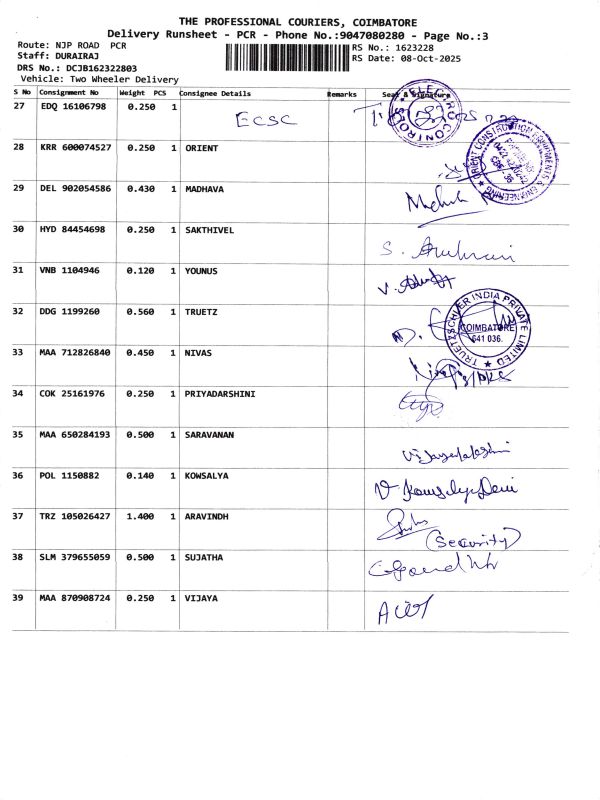 THE PROFESSIONAL COURIERS, COIMBATORE
Delivery Runsheet - PCR - Phone No.:9047080280 - Page No.:3
Route: NJP ROAD PCR
RS No.: 1623228
Staff: DURAIRAJ
RS Date: 08-Oct-2025
DRS No.: DCJB162322803
Vehicle: Two Wheeler Delivery
S No Consignment No Weight PCS Consignee Details Remarks Seal & Signature
27 EDQ 16106798 0.250 1 ECSC
ELECTRO CONTROLS
28 KRR 600074527 0.250 1 ORIENT
ORIENT CONSTRUCTION EQUIPMENTS & ENGINEERING
29 DEL 902054586 0.430 1 MADHAVA
30 HYD 84454698 0.250 1 SAKTHIVEL
31 VNB 1104946 0.120 1 YOUNUS
32 DDG 1199260 0.560 1 TRUETZ
TRUETZSCHLER INDIA PRIVATE LIMITED
COIMBATORE
641 036.
33 MAA 712826840 0.450 1 NIVAS
34 COK 25161976 0.250 1 PRIYADARSHINI
35 MAA 650284193 0.500 1 SARAVANAN
Vijayalakshmi
36 POL 1150882 0.140 1 KOWSALYA
V Kowsalya Devi
37 TRZ 105026427 1.400 1 ARAVINDH
(Security)
38 SLM 379655059 0.500 1 SUJATHA
39 MAA 870908724 0.250 1 VIJAYA